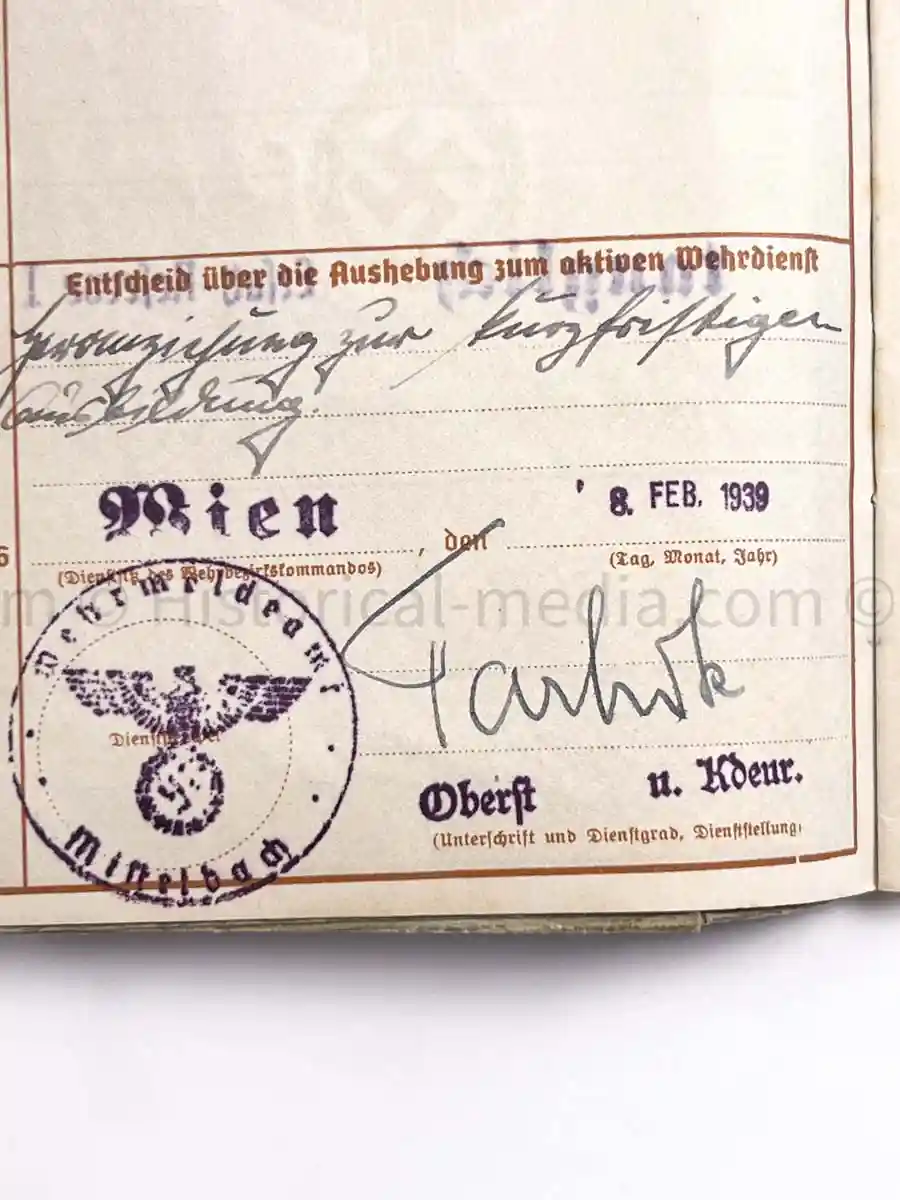 Entscheid über die Aushebung zum aktiven Wehrdienst
Heranziehung zur kurzfristigen
Ausbildung.
Wien
8. FEB. 1939
, den
6
(Dienstsitz des Wehrbezirkskommandos)
(Tag, Monat, Jahr)
m © Historical-media.com ©
Wehrmeldeamt
Dienststempel
Mistelbach
Oberst u. Kdeur.
(Unterschrift und Dienstgrad, Dienststellung)